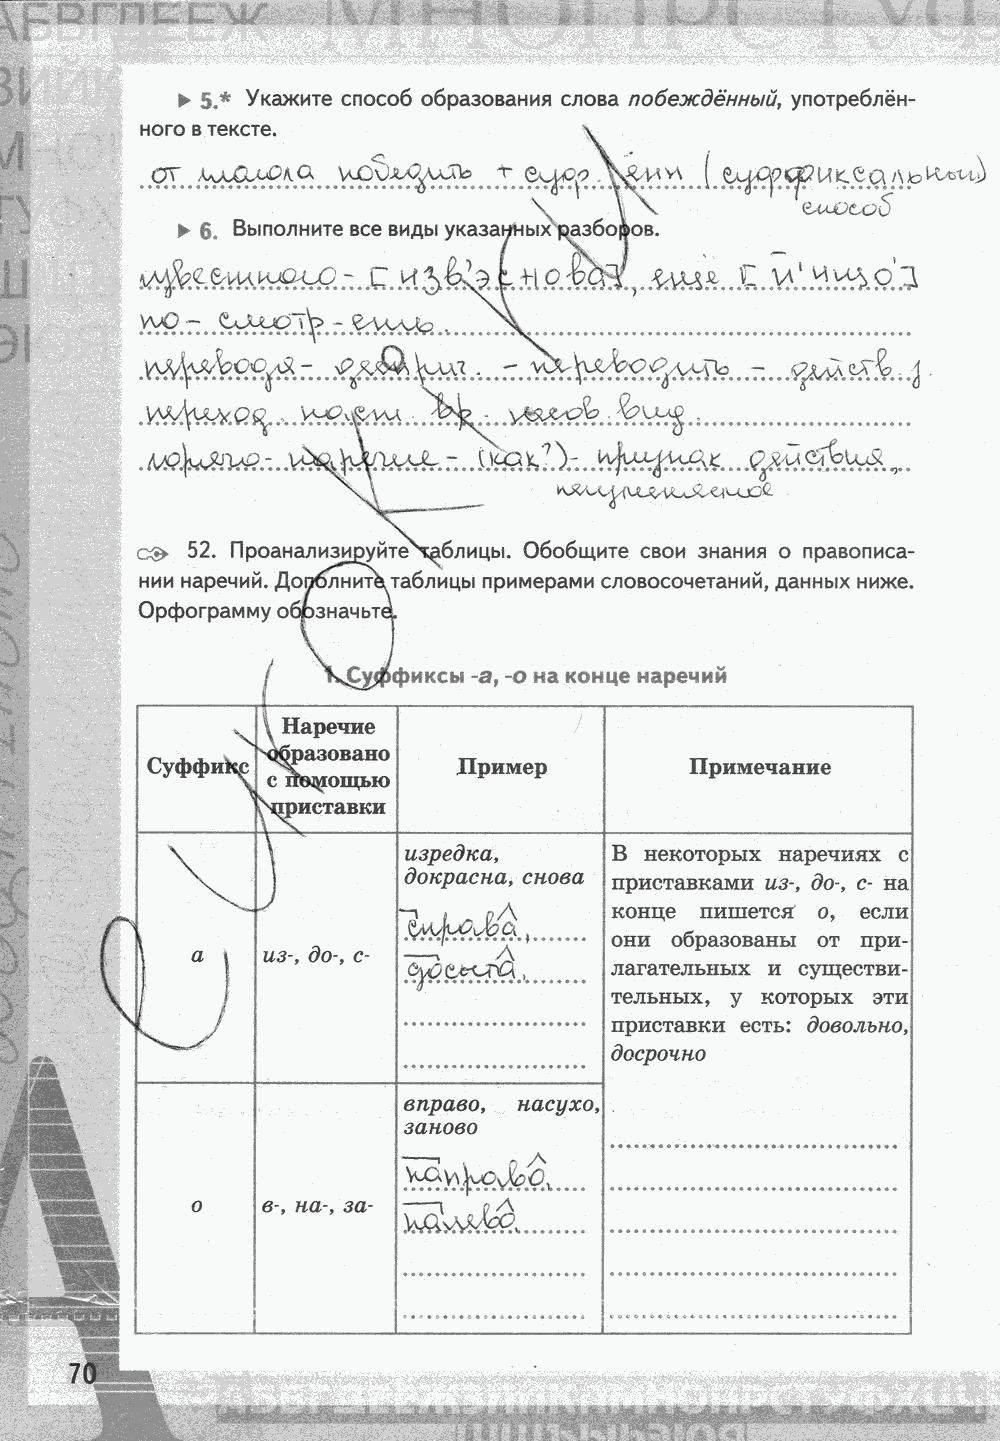 ▶ 5.* Укажите способ образования слова побеждённый, употреблён-
ного в тексте.
от глагола победить + суф. ённ (суффиксальный)
способ
▶ 6. Выполните все виды указанных разборов.
известного - [изв'эснова], ещё [й'ищо']
по - смотр - ешь.
переводя - дееприч. - переводить - действ.
переход. наст. вр. несов. вид.
горячо - наречие - (как?) - признак действия,
неизменяемое
52. Проанализируйте таблицы. Обобщите свои знания о правописа-
нии наречий. Дополните таблицы примерами словосочетаний, данных ниже.
Орфограмму обозначьте.
1. Суффиксы -а, -о на конце наречий
Суффикс
Наречие
образовано
с помощью
приставки
Пример
Примечание
а
из-, до-, с-
изредка,
докрасна, снова
справа,
досыта,
В некоторых наречиях с
приставками из-, до-, с- на
конце пишется о, если
они образованы от при-
лагательных и существи-
тельных, у которых эти
приставки есть: довольно,
досрочно
о
в-, на-, за-
вправо, насухо,
заново
направо,
налево,
70